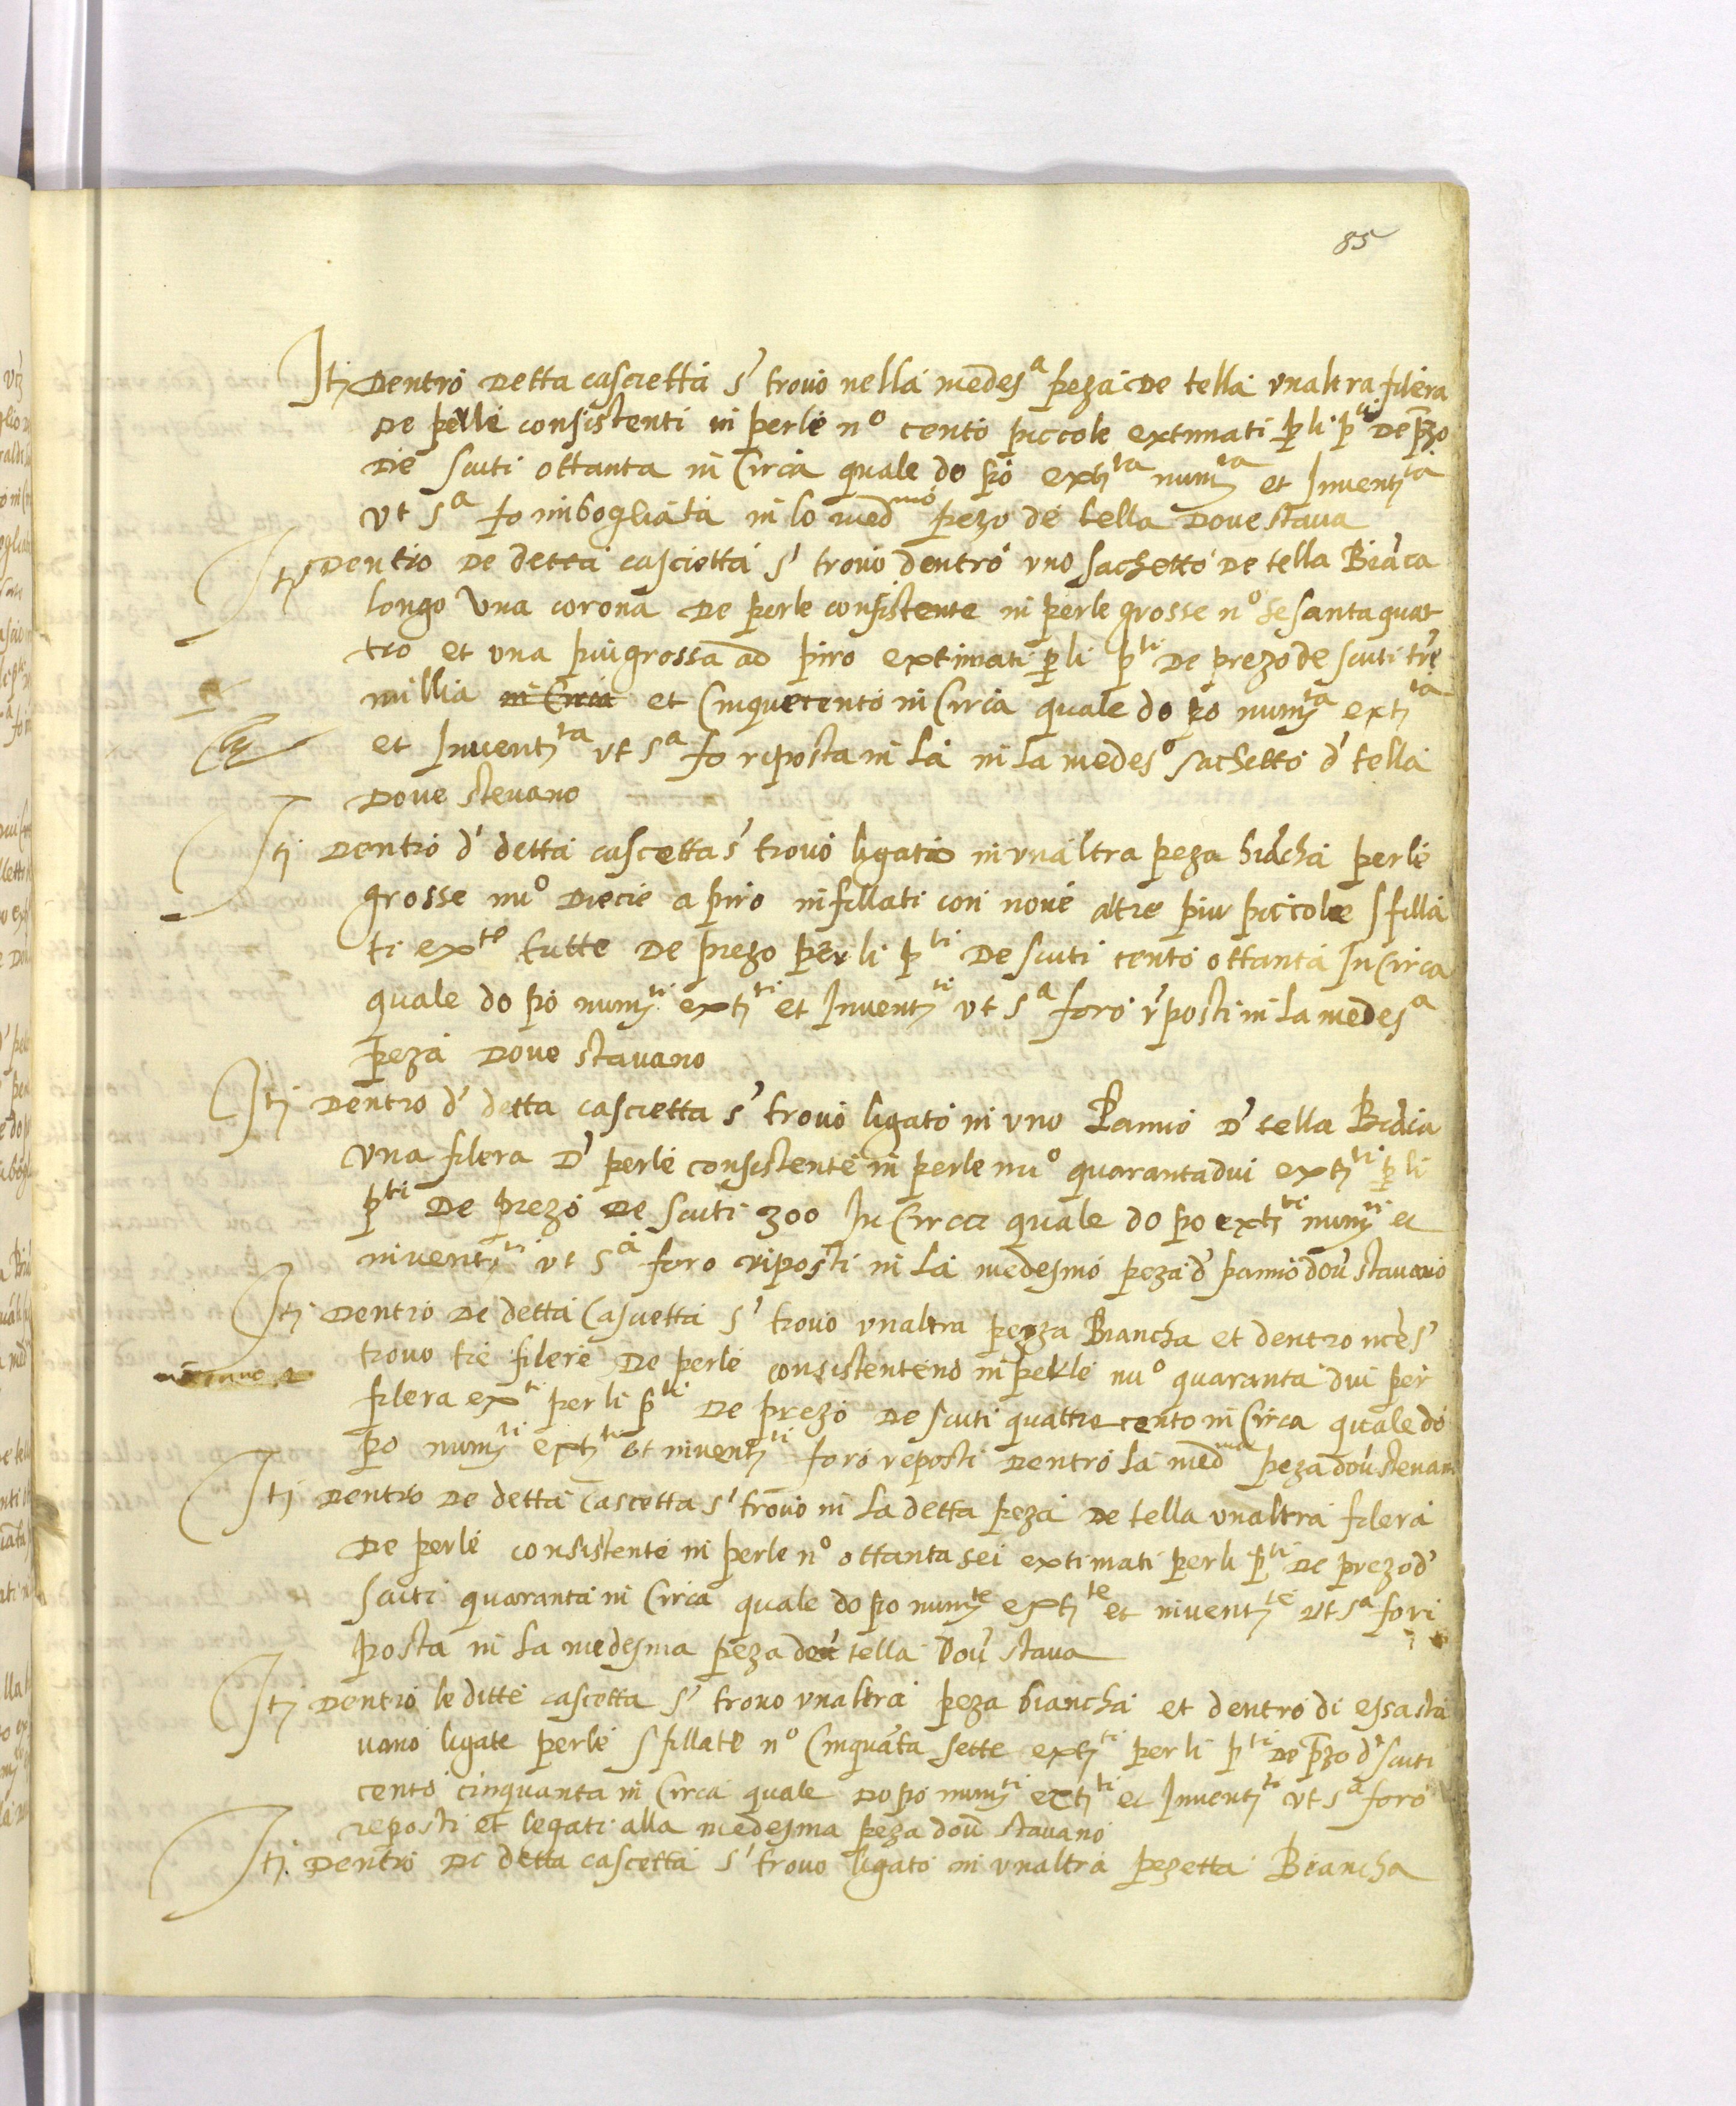 85
Itj Dentro detta cascietta s' trovò nella medesª peza de tella unaltra filera
de perle consistenti in perle nº cento piccole extimati p li pti de pzo
de scuti ottanta in Circa quale dopo extjta numta et Inventjta
ut sª fo imbogliata in lo medmo pezo de tella dove stava
Itj Dentro de detta cascietta s' trovò dentro uno sachetto de tella Biãca
longo una corona de perle consistente in perle grosse nº sesantaquat
tro et una più grossa ad piro extimati p li pti de prezo de scuti tre
millia in Circa et Cinquecento in Circa quale dopo numta extjta
et Inventjta ut sª fo reposta in la in la medesº sachetto d' tella
dove stevano
Itj Dentro d' detta cascetta s' trovò ligato in unaltra peza biãcha perle
grosse nuº diecie a piro infillati con nove altre più piccole sfilla
ti exte tutte de prezo per li pti de scuti cento ottanta In Circa
quale dopo numti extjti et Inventjti ut sª foro r'posti in la medesª
peza dove stavano
Itj Dentro d' detta cascietta s' trovò ligato in uno Panno d' tella Biãca
una filera d' perle consistente in perle nuº quarantadui extjti p li
pti de prezo de scuti 300 In Circa quale dopo extjti numti et
inventjti ut sª foro riposti in la medesmo peza d' panno dou' stavano
Itj Dentro de detta Cascietta s' trovò unaltra pezza Biancha et dentro nce s'
trovo tre filere de perle consistenteno in perle nuº quaranta dui per
filera exti per li pti de prezo de scuti quattrocento in Circa quale do
po numti extjti et inventjti foro reposti dentro la medma peza dou' stevano
Itj Dentro de detta cascetta s' trovò in la detta peza de tella unaltra filera
de perle consistente in perle nº ottanta sei extimati per li pti de prezo d'
scuti quaranta in Circa quale dopo numte extjte et inventjte ut sª fo ri
posta in la medesma peza de tella dou' stava
Itj Dentro le ditte cascetta s' trovo unaltra peza biancha et dentro di essa sta
vano ligate perle sfillate nº Cinquãta sette extjti per li pti de pzo d' scuti
cento cinquanta in Circa quale dopo numti extjti et Inventjti ut sª foro
reposti et legati alla medesma peza dou' stavano
Itj Dentro de detta cascetta s' trovo ligato in unaltra pezetta Biancha